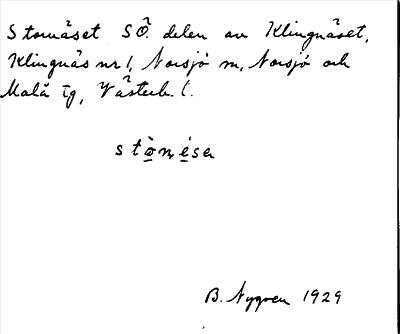 Stornäset SÖ. delen av Klingnäset,
Klingnäs nr 1, Norsjö sn, Norsjö och
Malå tg, Västerb. l.
B. Nygren 1929